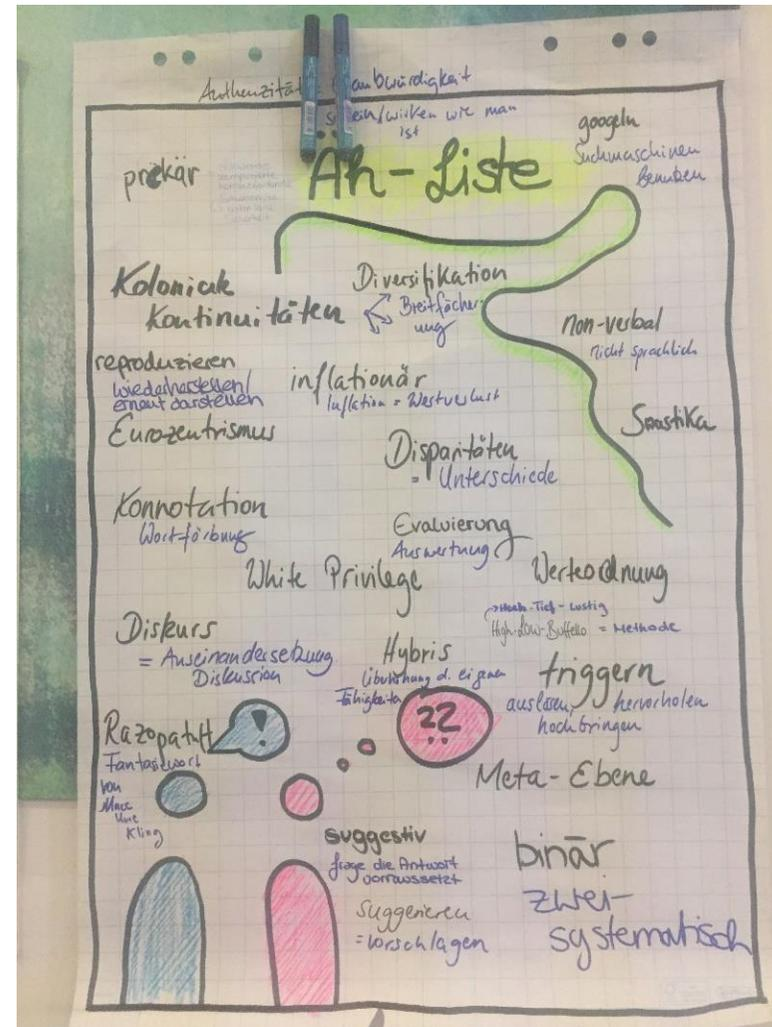 Authenzität
aubwürdigkeit
sein/wirken wie man
ist
googeln
Suchmaschinen
Benutzen
prekär
Äh-Liste
Koloniale
Kontinuitäten
Diversifikation
Breitfächer
ung
non-verbal
nicht sprachlich
reproduzieren
wiederherstellen/
erneut darstellen
inflationär
Inflation = Wertverlust
Swastika
Eurozentrismus
Disparitäten
= Unterschiede
Konnotation
Wortfärbung
Evaluierung
Auswertung
White Privilege
Werteordnung
Diskurs
= Auseinandersetzung
Diskussion
Hoch-Tief-Lustig
High-Low-Buffello = Methode
Hybris
d. eigenen
Fähigkeiten
triggern
auslösen, hervorholen
hochbringen
!
??
Razopatuft
Fantasiewort
von
Marc
Uwe
Kling
Meta-Ebene
suggestiv
frage die Antwort
vorraussetzt
suggerieren
= vorschlagen
binär
zwei-
systematisch